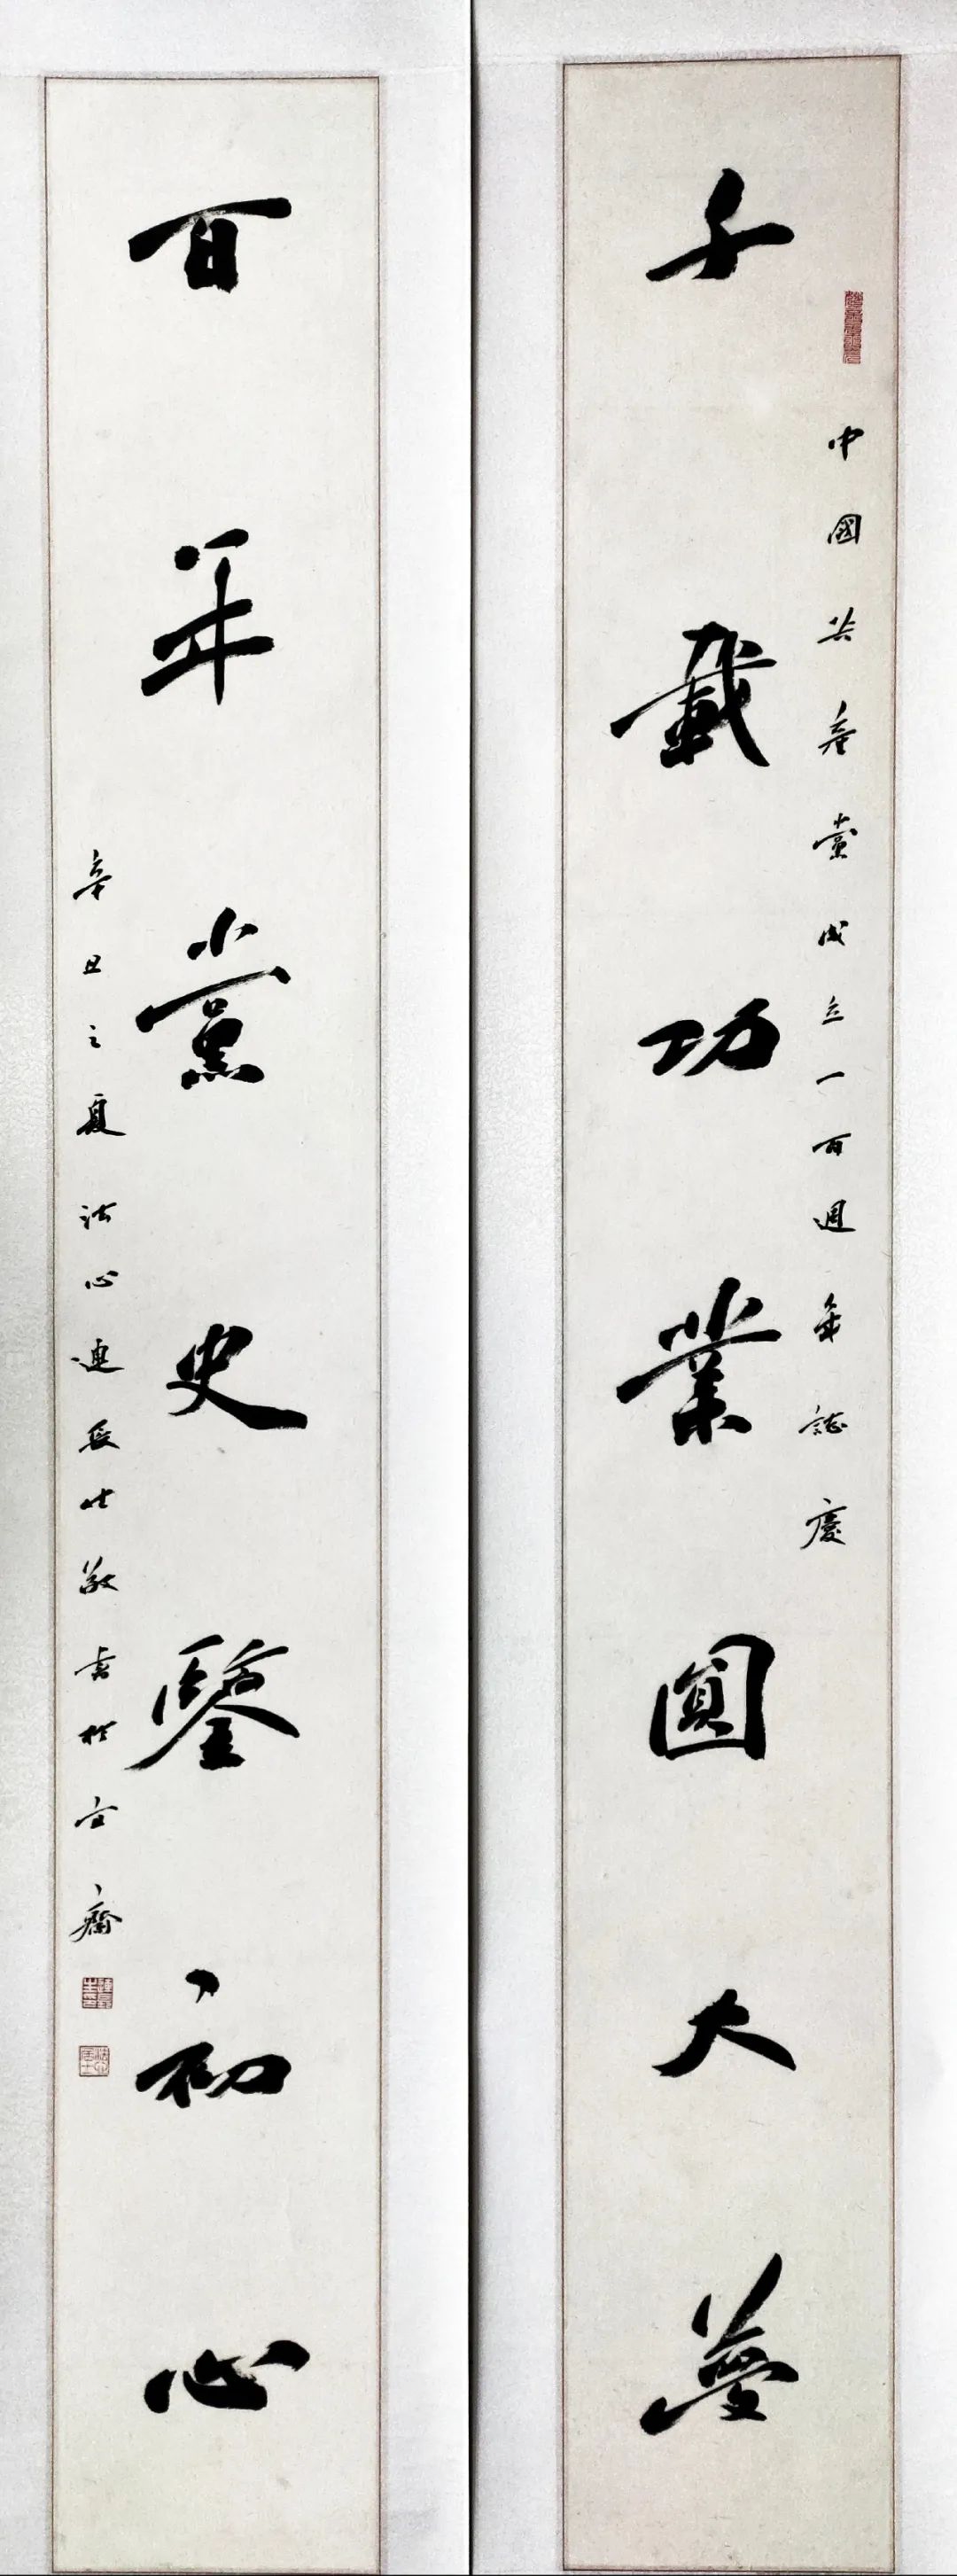 千載功業圓大夢
中國共產黨成立一百週年誌慶
百年黨史鑒初心
辛丑之夏法心連長此敬書於 齋